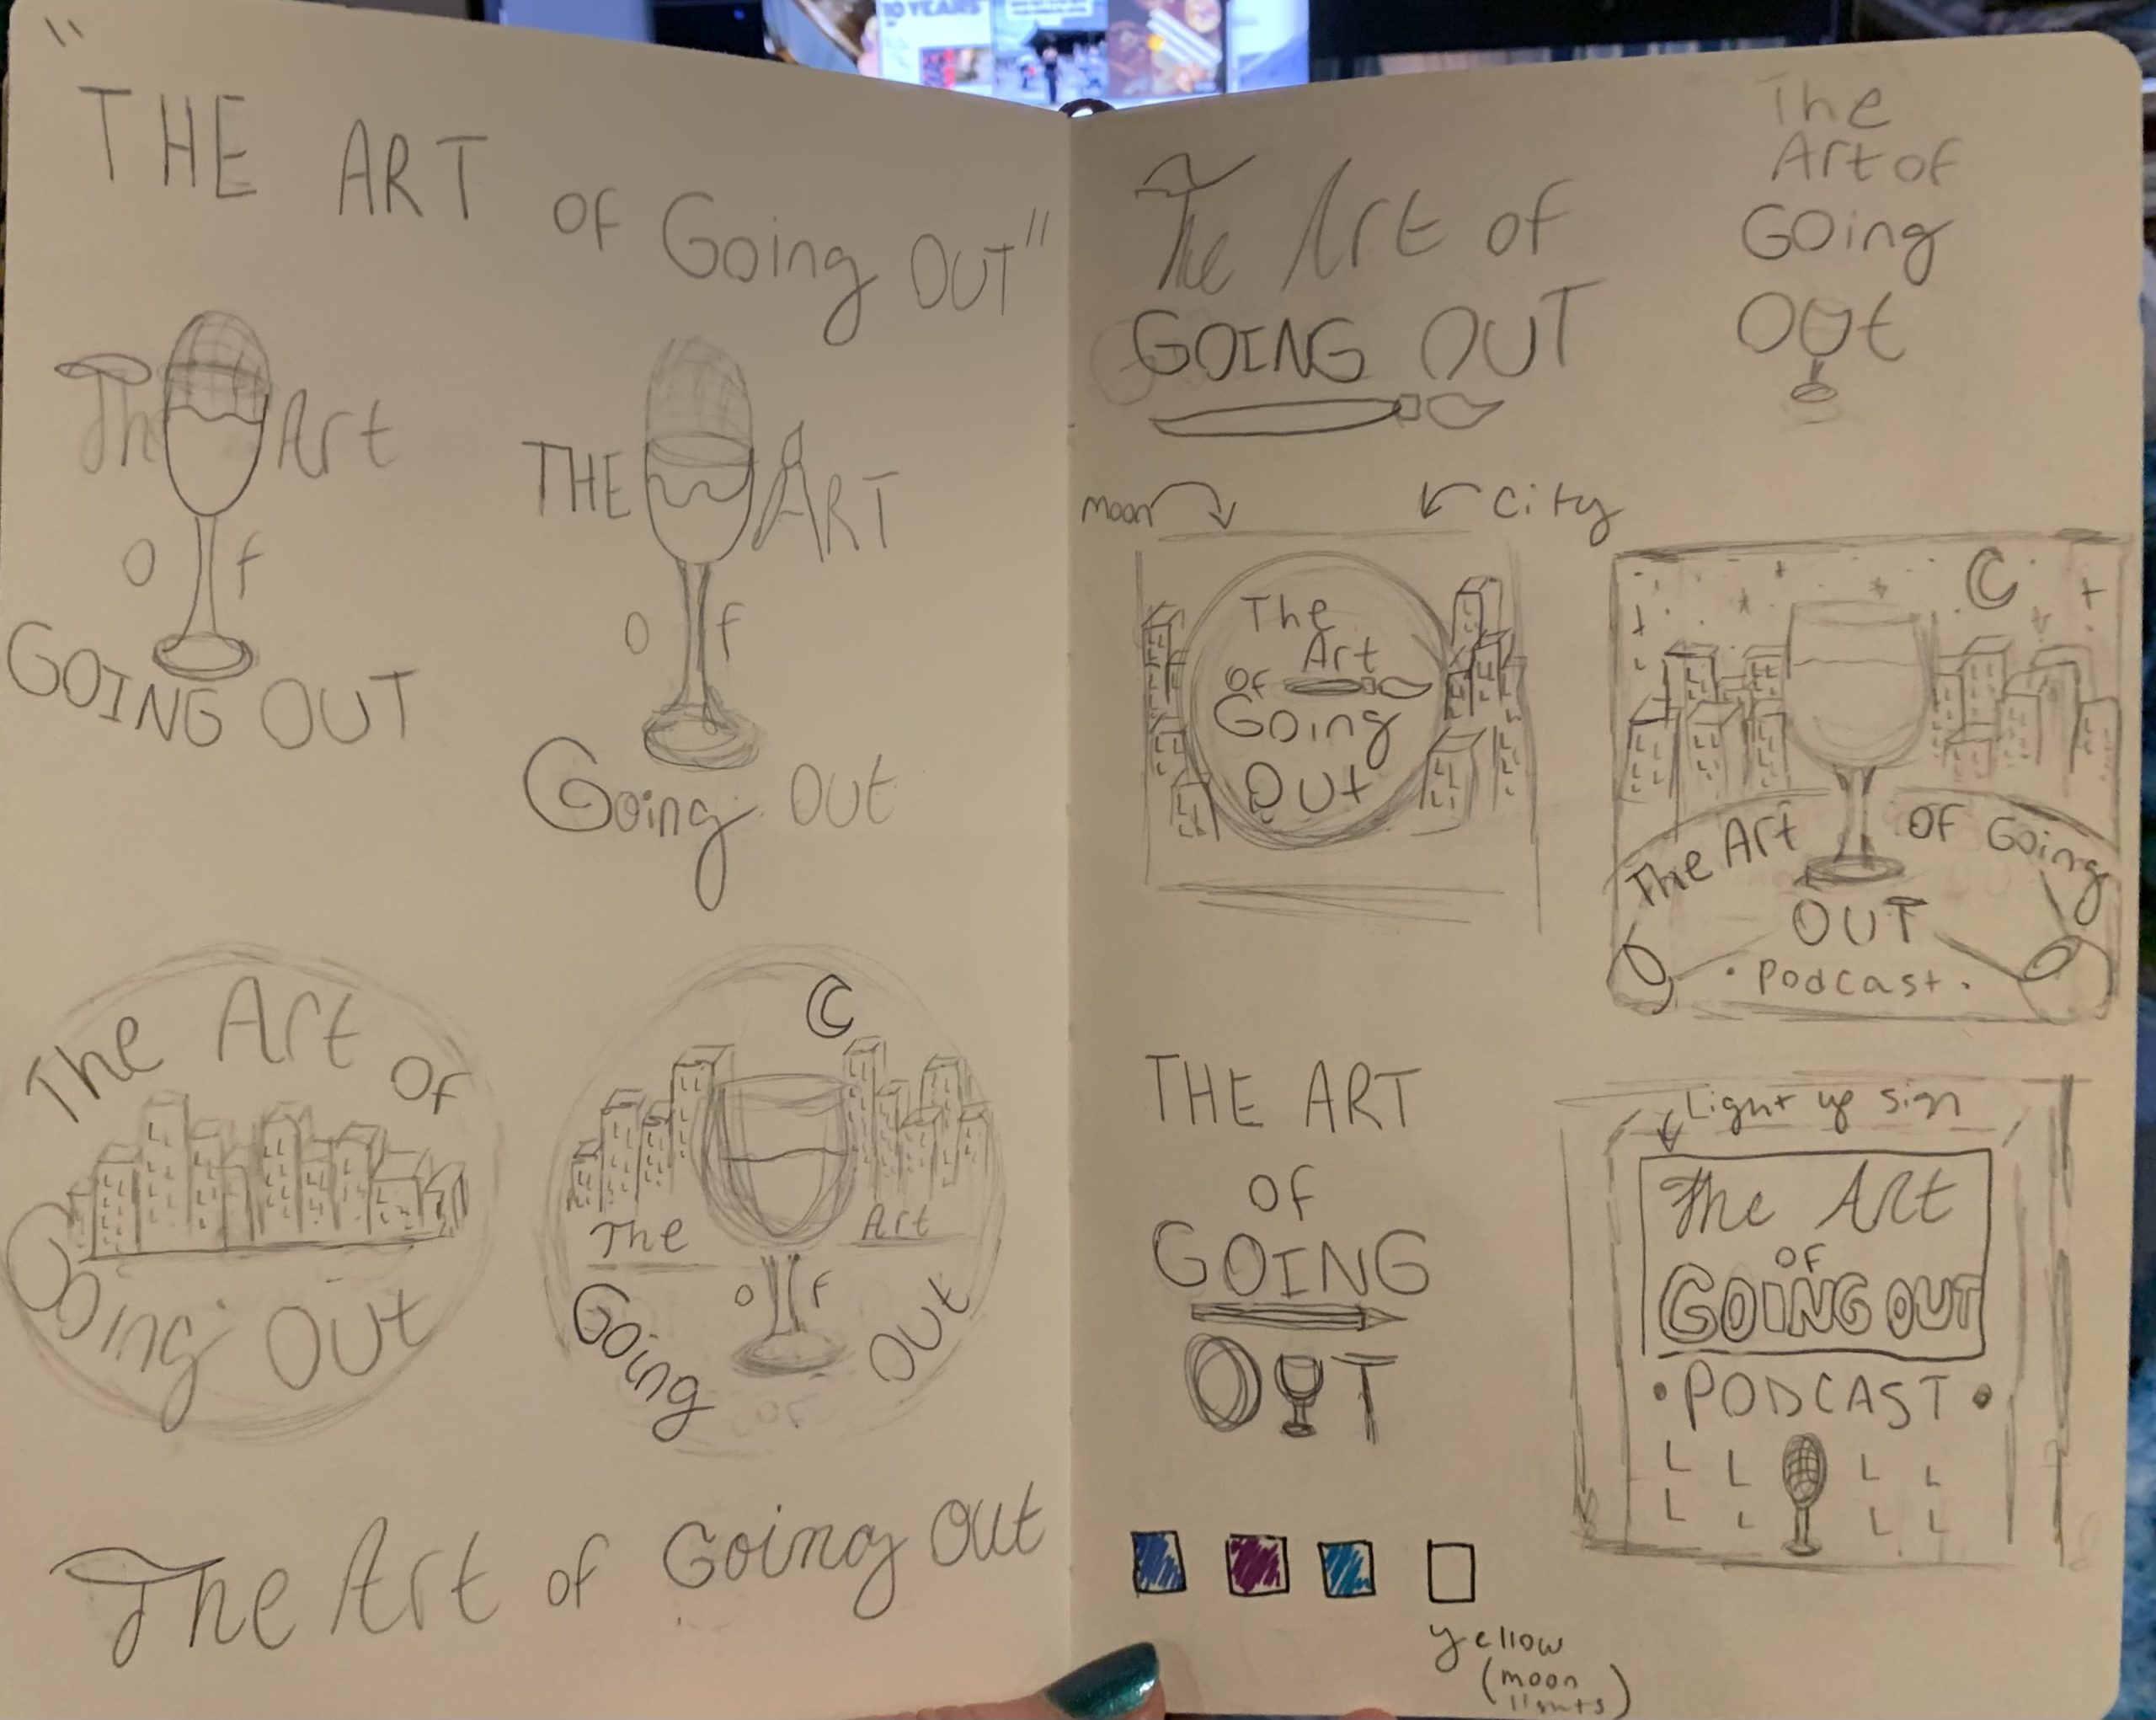 10 YEARS
"THE ART OF Going OUT"
The Art
OF
GOING OUT
THE ART
OF
Going OUt
The Art OF
Going OUt
The Art
OF
Going OUt
The Art of Going Out
The Art of
GOING OUT
The
Art of
GOing
OUt
moon
City
The
Art
OF
Going
OUt
The Art OF Going
OUT
• Podcast •
THE ART
OF
GOING
OUT
Light up sign
The Art
OF
GOING OUT
• PODCAST •
yellow
(moon
lights)